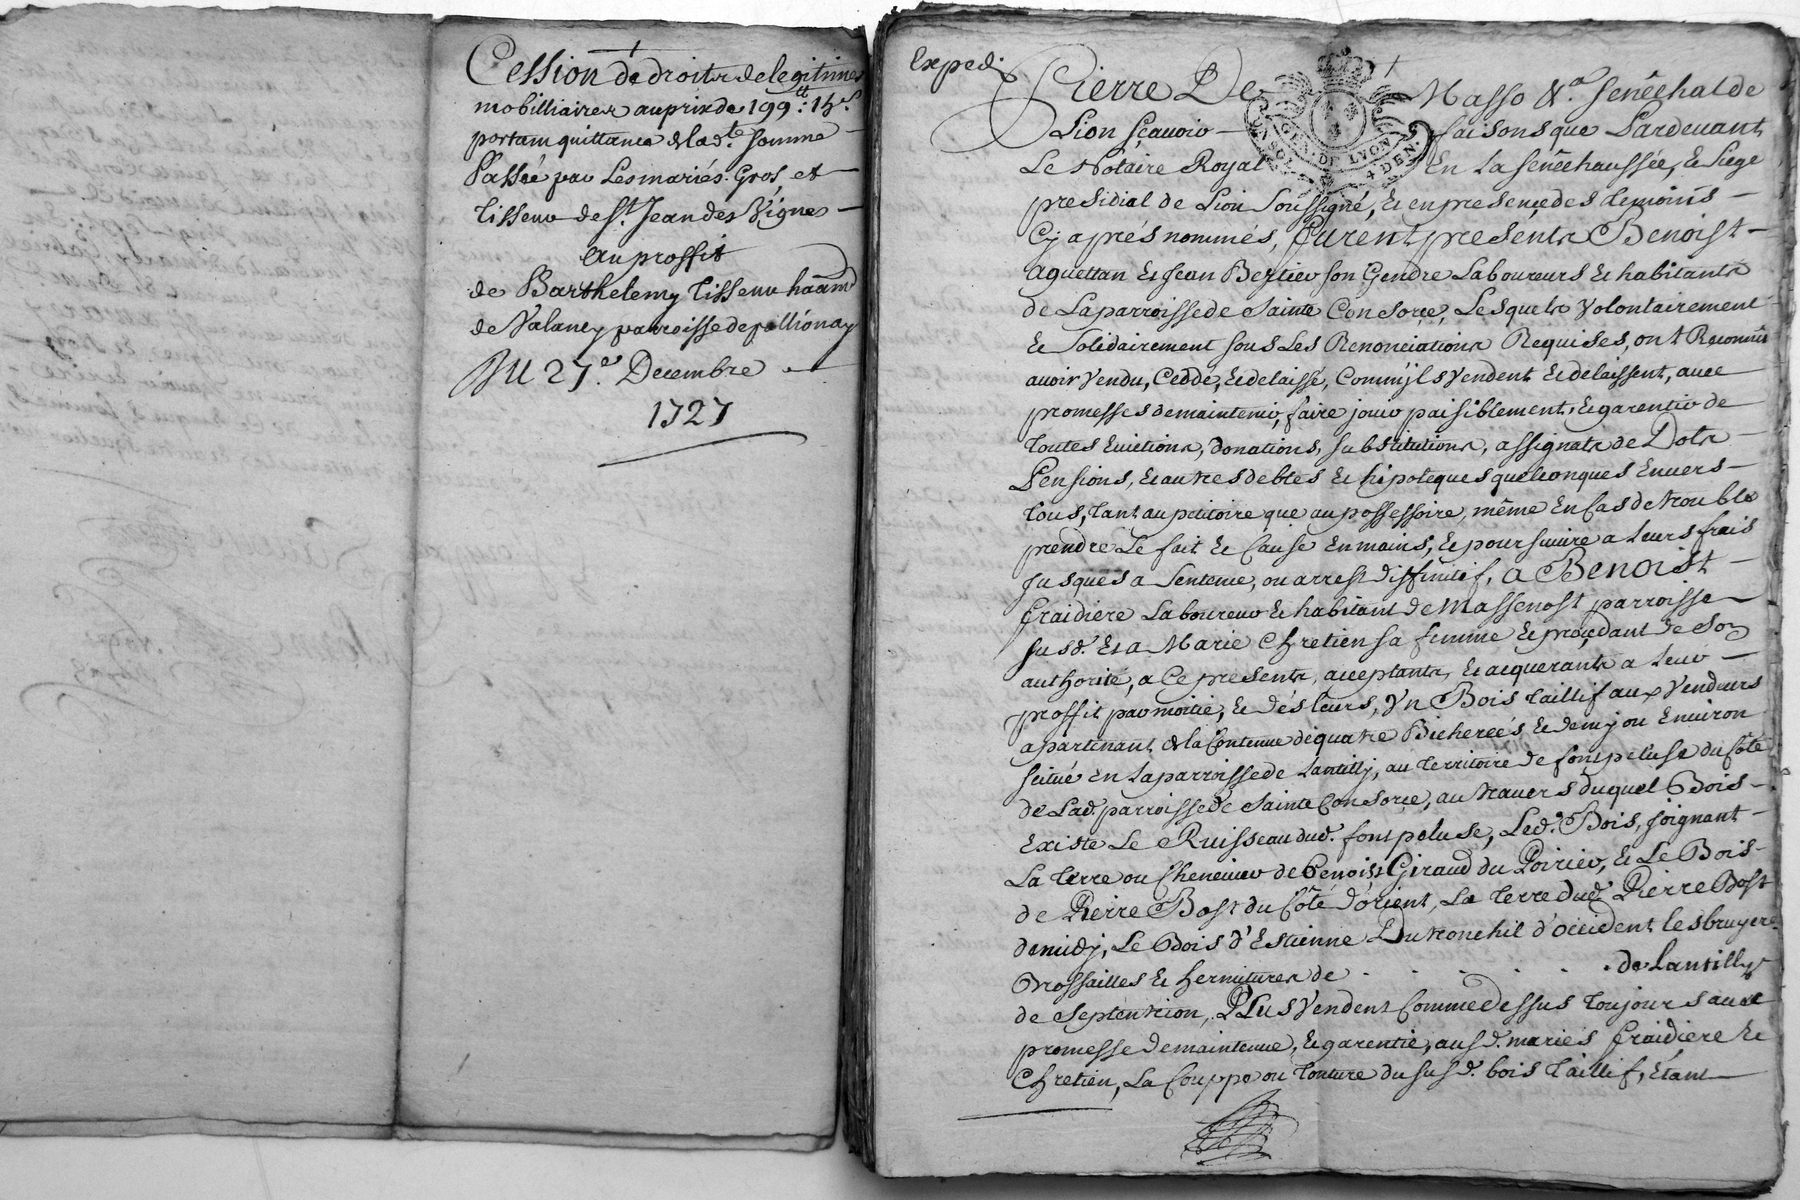 Cession de droits de legitimes
mobilliaires au prix de 199ₗₜ: 15ˢ
portant quittance de lad.te somme
Passé par Les mariés Gros et
tisseur de St. Jean des Vignes
au proffit
de Barthelemy tisseur ha͠and
de Valancy parroisse de pollionay
DU 27e. Decembre
1727
Exped.
Pierre De Masso &a. senêchal de
Lion sçavoir faisons que Pardevant
Le Notaire Royal En La senêchaussée, et siege
presidial de Lion soussigné, et en presence des temoins
Cy aprés nommés, furent presents Benoist
aguettan et Jean Berliev son Gendre Laboureurs et habitants
de La parroisse de Sainte Consorce, Lesquels volontairement
et solidairement sous Les Renonciations Requises, ont Reconnû
avoir vendu, Ceddé, et delaissé, Comm'jls vendent et delaissent, avec
promesses de maintenir, faire jouir paisiblement, et garentir de
toutes Evictions, donations, substitutions, assignats de Dots
Pensions, et autres debtes et hipoteques quelconques Envers
tous, tant au petitoire que au possessoire, même En Cas de trouble
prendre Le fait et Cause En mains, et poursuivre a Leurs frais
jusques a sentence, ou arrest diffinitif, a Benoist
fraidiere Laboureur et habitant de Massenost parroisse
susd. et a Marie Chretien sa femme et procedant de son
authorité, a Ce presents, acceptants, et acquerants a Leur
proffit par moitié, et dés Leurs, Vn Bois taillif aux Vendeurs
apartenant de la Contenue de quatre Bicherées et demy ou Environ
scitué en La parroisse de Lantilly, au territoire de fontpeluse du Côté
de Lad. parroisse de Sainte Consorce, au travers duquel Bois
Existe Le Ruisseau dud. fontpeluse, Led. Bois, joignant
La terre ou Chenevier de Benoist Giraud du Poirier, et Le Bois
de Pierre Bost du Côté d'orient, La terre dud. Pierre Bost
de midy, Le Bois d'Estienne Dutronchil d'occident les bruyere
Brossailles et hermitures de . . . . . . de Lantilly
de Septentrion, PLus Vendent Comme dessus toujours avec
promesse de maintenue, et garentie, aus d. mariés fraidiere et
Chretien, La Couppe ou tonture du susd. bois taillif, Etant
GEN. DE LYON
4 DEN.